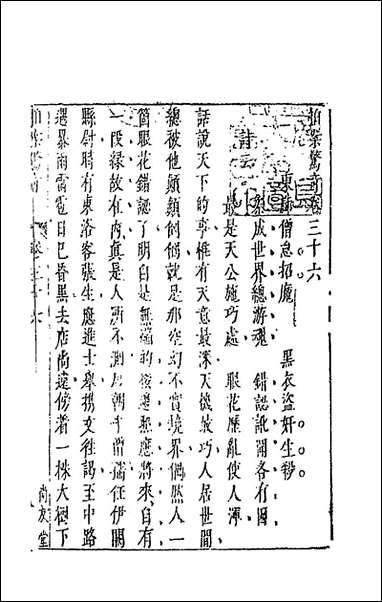 拍案驚奇卷三十六
東廊僧怠招魔　黑衣盜奸生殺
詩云
參成世界總游魂　錯認訛聞各有因
最是天公施巧處　眼花歷亂使人渾
話說天下的事惟有天意最深天機最巧人居世間
總被他顛顛倒倒就是那空幻不實境界偶然人一
箇眼花錯認了明白是無端的後邊照應將來自有
一段緣故在內真是人所不測唐朝牛僧孺任伊闕
縣尉時有東洛客張生應進士舉携文往謁至中路
遇暴雨雷雹日已昏黑去店尚遠傍着一株大樹下
尚友堂